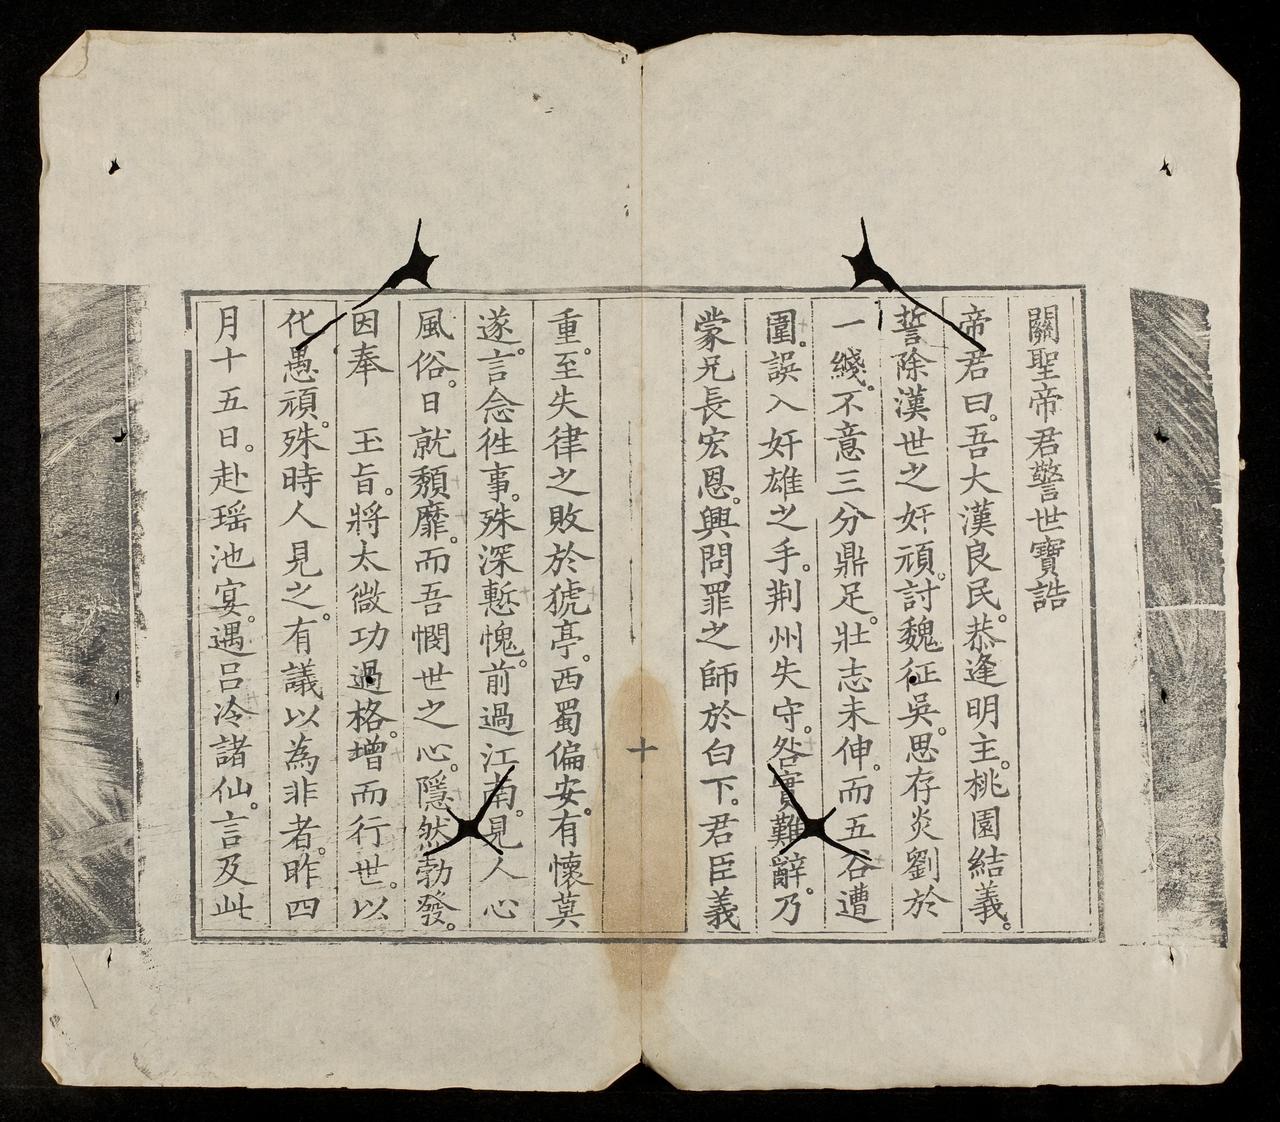 關聖帝君警世寶誥
帝君曰。吾大漢良民。恭逢明主。桃園結義。
誓除漢世之奸頑。討魏征吳。思存炎劉於
一綫。不意三分鼎足。壯志未伸。而五谷遭
圍。誤入奸雄之手。荆州失守。咎實難辭。乃
蒙兄長宏恩。興問罪之師於白下。君臣義
十
重。至失律之敗於猇亭。西蜀偏安。有懷莫
遂。言念徃事。殊深慙愧。前過江南。見人心
風俗。日就頽靡。而吾憫世之心。隱然勃發。
因奉　玉旨。將太微功過格。增而行世。以
化愚頑。殊時人見之。有議以為非者。昨四
月十五日。赴瑶池宴。遇吕冷諸仙。言及此